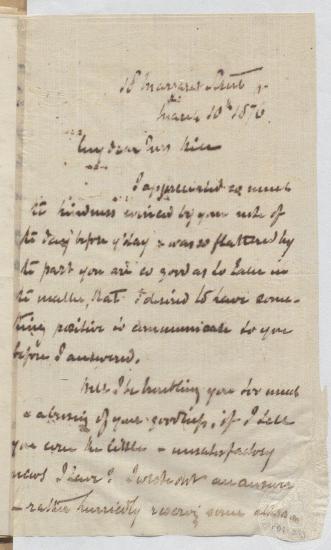 18 Margaret Street
March 10th 1876.
My dear Miss
I appreciated so much
the kindness evinced by your note of
the day before y'day & was so flattered by
the part you are so good as to take in
the matter, that I desired to have some-
thing positive to communicate to you
before I answered.
Will I be troubling you too much
& abusing of your goodness, if I tell
you even the little & unsatisfactory
news I have? I
rather hurriedly reserving some